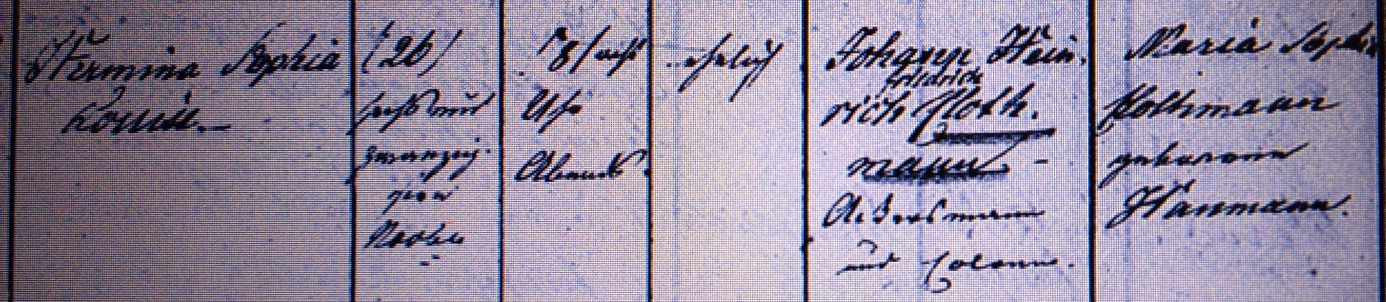 Hermina Sophia
Louise.
(26)
sechs und
zwanzig-
sten
Novbr
8/acht
Uhr
Abends
ehelich
Johann Hein-
friedrich
rich Noth-
mann -
Ackersmann
und Colonus.
Maria Sophia
geborene
Haumann.